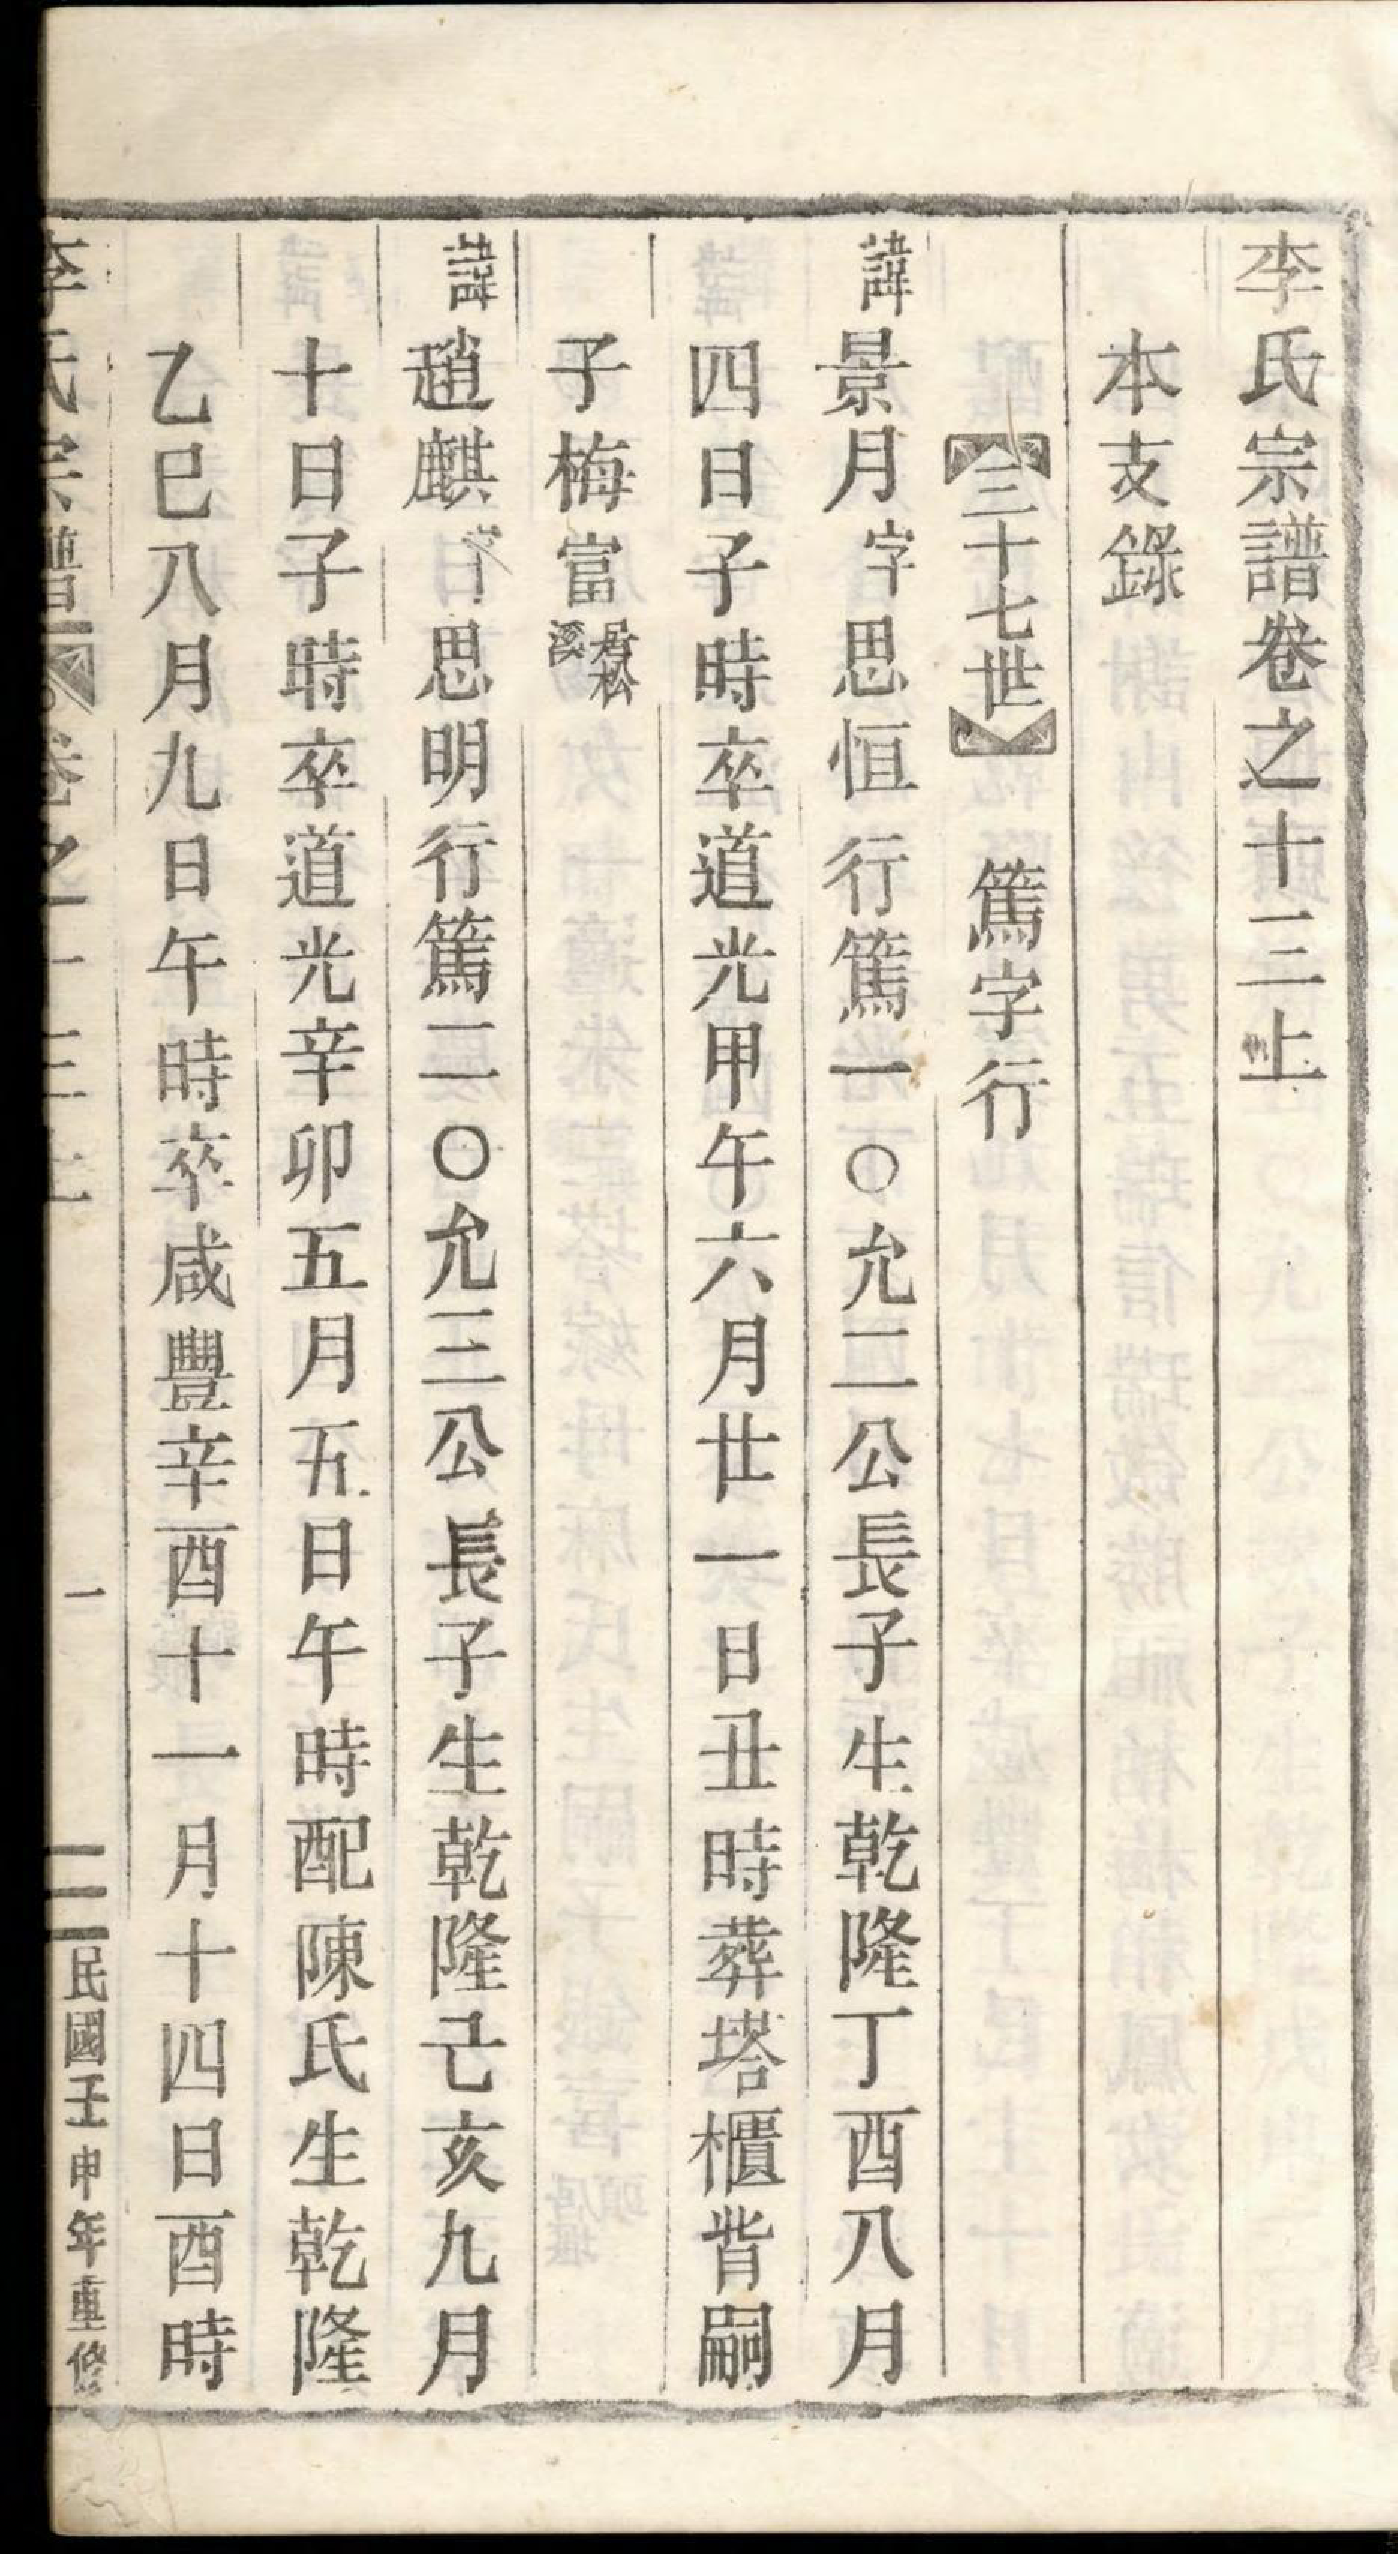 李氏宗譜卷之十三上
本支錄
三十七世 篤字行
諱景月字思恒行篤一〇允二公長子生乾隆丁酉八月
四日子時卒道光甲午六月廿一日丑時葬塔櫃背嗣
子梅富居松溪
諱趙麒字思明行篤二〇允三公長子生乾隆己亥九月
十日子時卒道光辛卯五月五日午時配陳氏生乾隆
乙巳八月九日午時卒咸豐辛酉十一月十四日酉時
李氏宗譜 卷之十三上 一 民國壬申年重修